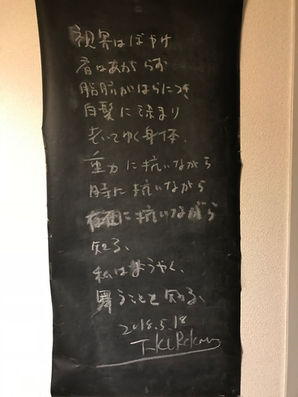 視界はぼやけ
肩はあがらず
脂肪がはらにつき
白髪に染まり
老いてゆく身体、
重力に抗いながら
時に抗いながら
に抗いながら
知る、
私はようやく、
舞うことを知る、
2018.5.18